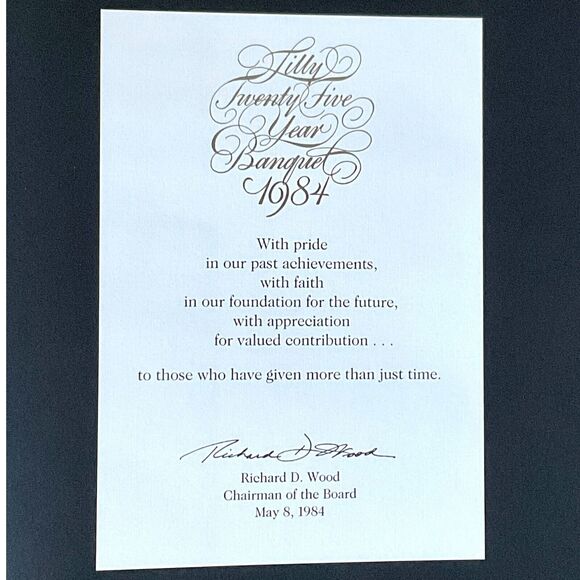 Lilly
Twenty Five
Year
Banquet
1984
With pride
in our past achievements,
with faith
in our foundation for the future,
with appreciation
for valued contribution . . .
to those who have given more than just time.
Richard D Wood
Richard D. Wood
Chairman of the Board
May 8, 1984